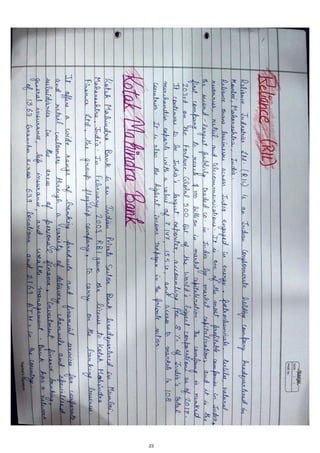 Reliance (RIL)
Reliance Industries Ltd (RIL) is an Indian conglomerate holding company headquartered in
Mumbai, Maharashtra, India.
Reliance owns businesses across India engaged in energy, petrochemicals, textiles, natural
resources, retail and telecommunications. It is one of the most profitable companies in India,
the second largest publicly traded co. in India by market capitalization, and it is the
first company to reach
on the Fortune Global 500 list of the world's biggest corporations as of 2018.
It continues to be India's largest exporter, accounting for 8% of India's total
merchandise exports with a value of and access to markets in 108
countries. It is the highest income taxpayer in the private sector.
Kotak Mahindra Bank
Kotak Mahindra Bank is an Indian Private Sector Bank headquartered in Mumbai,
Maharashtra, India. In February 2003, RBI gave the license to Kotak Mahindra
Finance Ltd, the group flagship company, to carry on the banking business.
It offers a wide range of banking products and financial services for corporate
and retail customers through a variety of delivery channels and specialised
subsidiaries in the area of personal finance, investment banking,
general insurance, life insurance and wealth management. Bank has a network
of 1369 branches across 689 locations and 2163 ATMs in the country.
23